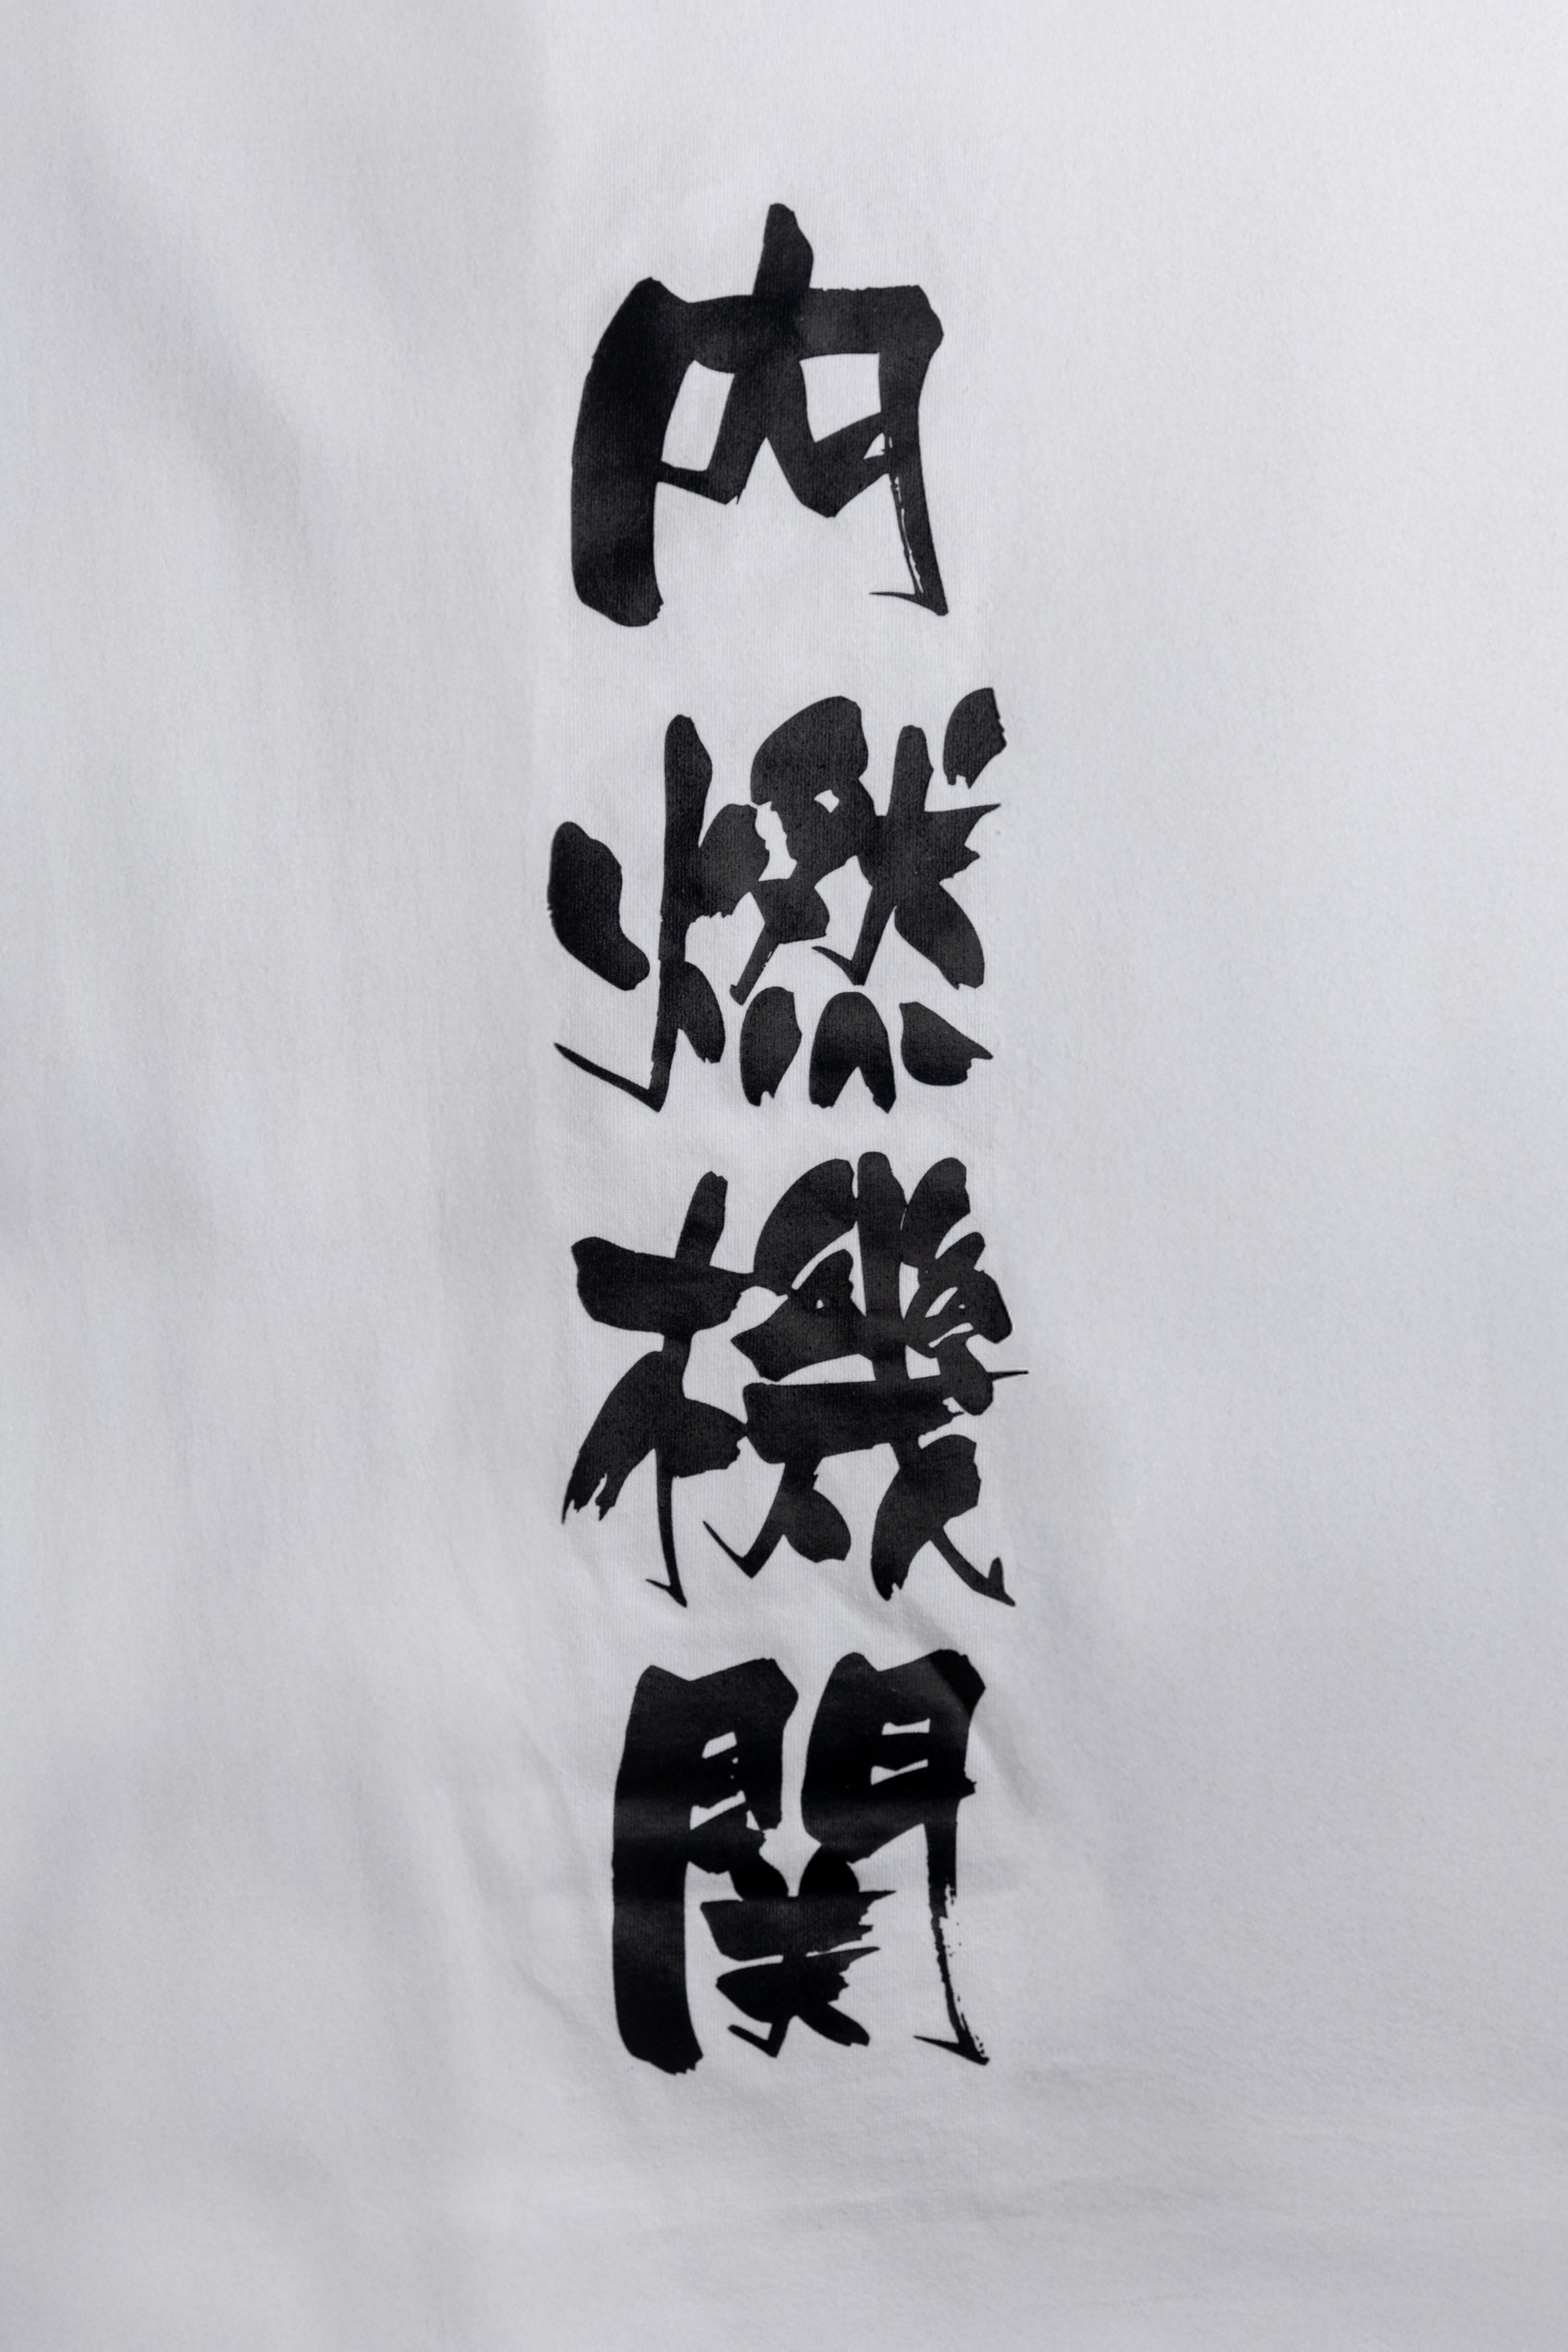 内燃機関